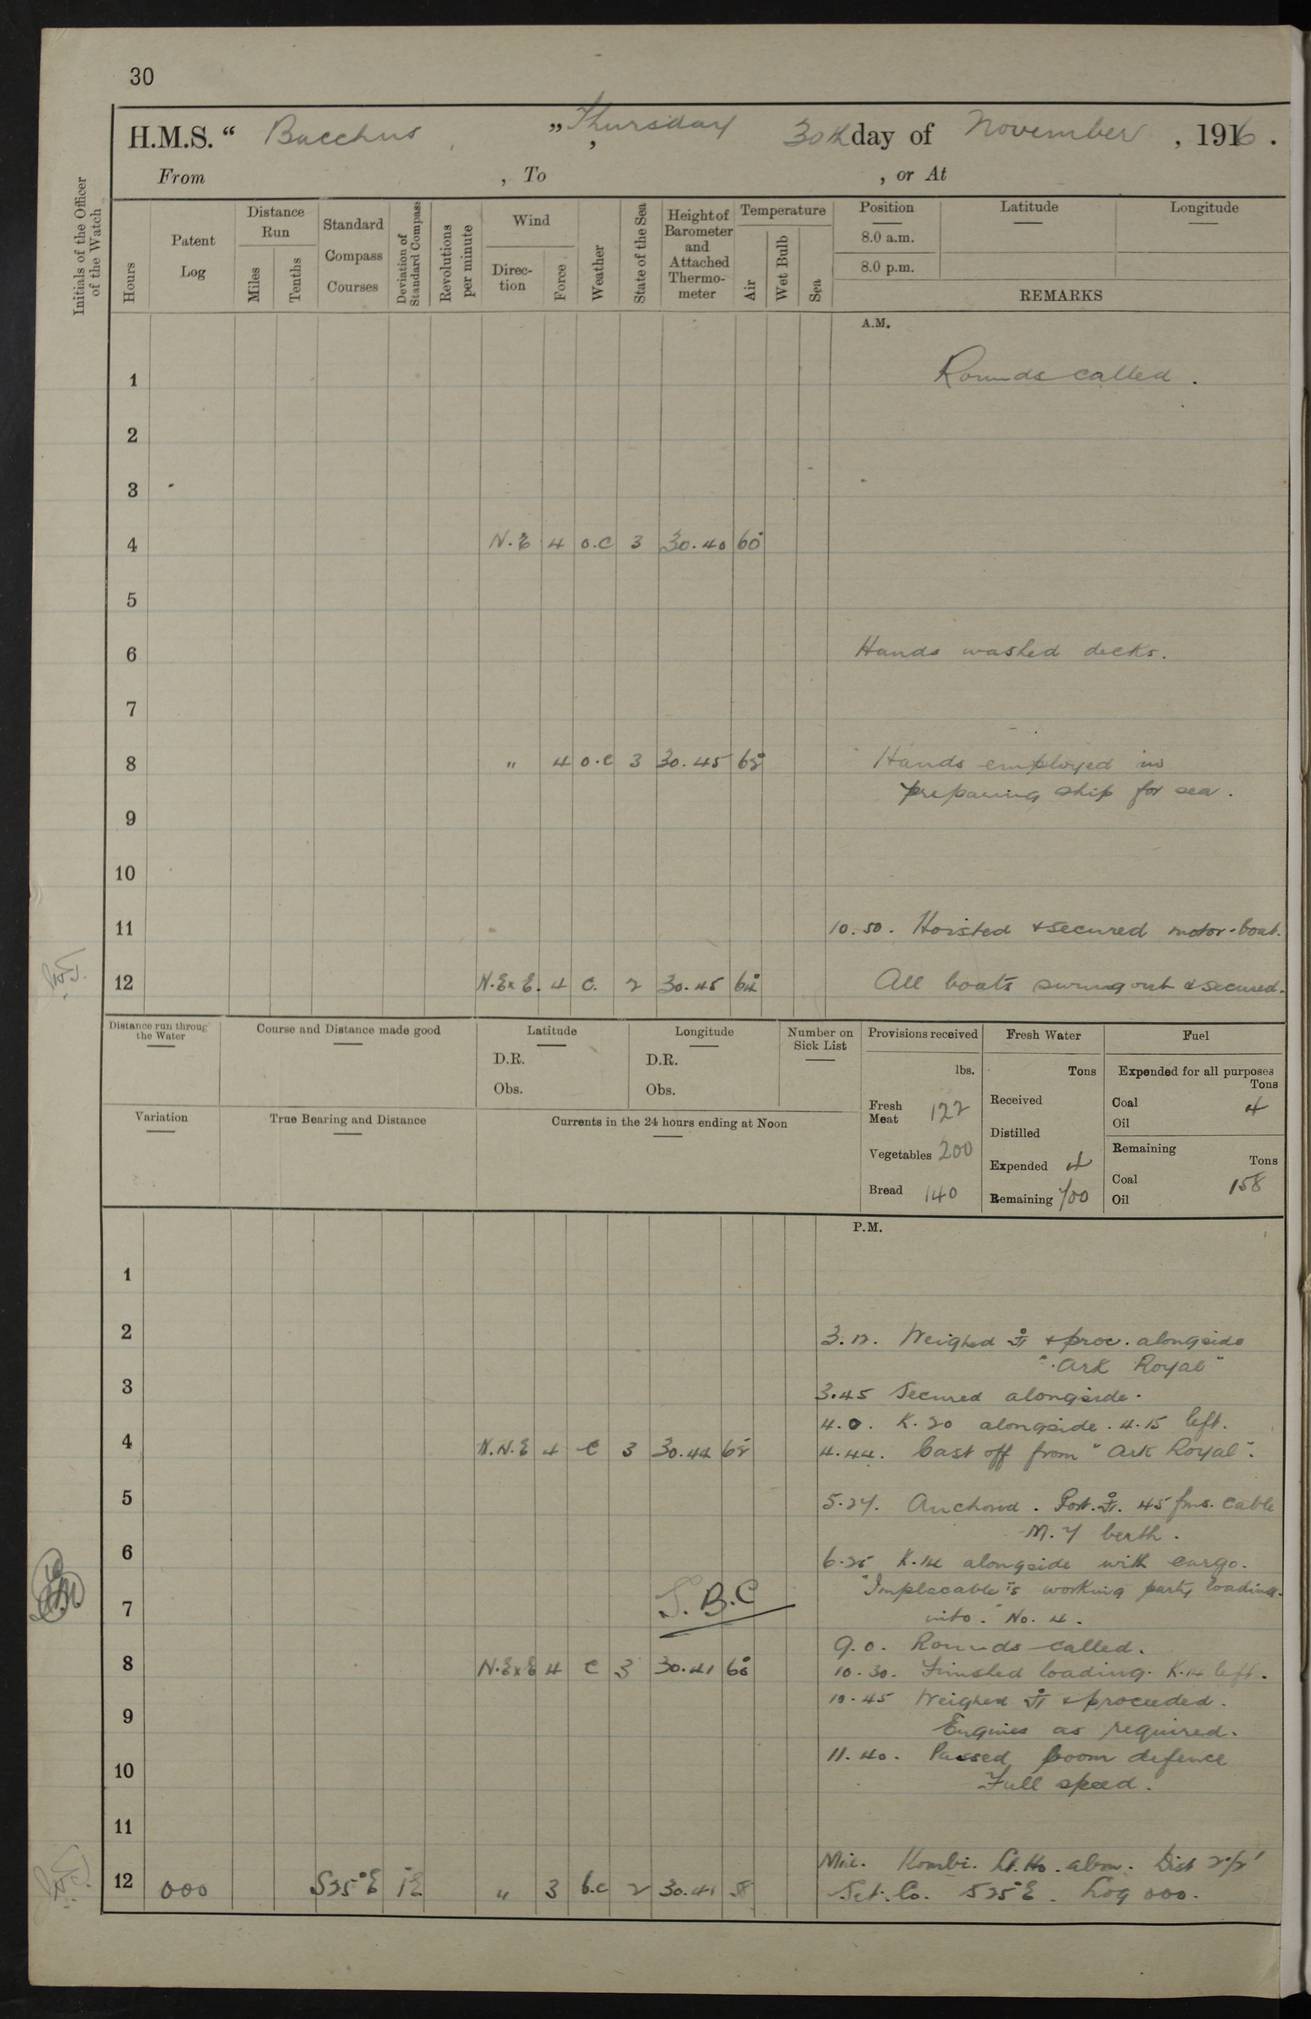 30
H.M.S. “ Bacchus ” , Thursday 30th day of November , 1916 .
From , To , or At
Initials of the Officer of the Watch
Hours
Patent Log
Distance Run
Miles
Tenths
Standard Compass Courses
Deviation of Standard Compass
Revolutions per minute
Wind
Direc-tion
Force
Weather
State of the Sea
Height of Barometer and Attached Thermo-meter
Temperature
Air
Wet Bulb
Sea
Position
8.0 a.m.
8.0 p.m.
Latitude
Longitude
REMARKS
A.M.
1 Rounds called .
2
3
4 N.E 4 o.c 3 30.40 60°
5
6 Hands washed decks.
7
8 " 4 o.c 3 30.45 62° Hands employed in
preparing ship for sea .
9
10
11 10.50. Hoisted & secured motor-boat.
12 N.ExE. 4 c. 2 30.45 64° All boats swung out & secured.
Distance run through the Water
Course and Distance made good
Latitude
D.R.
Obs.
Longitude
D.R.
Obs.
Number on Sick List
Provisions received
lbs.
Fresh Meat 122
Vegetables 200
Bread 140
Fresh Water
Tons
Received
Distilled
Expended 4
Remaining 100
Fuel
Expended for all purposes
Tons
Coal 4
Oil
Remaining
Tons
Coal 158
Oil
Variation
True Bearing and Distance
Currents in the 24 hours ending at Noon
P.M.
1
2 3.12. Weighed & proc. alongside
" Ark Royal "
3 3.45 Secured alongside.
4.0. K.20 alongside. 4.15 left.
4 N.N.E 4 c 3 30.44 62° 4.44. Cast off from " Ark Royal ".
5 5.27. Anchored . Port. 45 fms. cable
M.Y berth .
6 6.25 K.14 alongside with cargo.
"Implacable"'s working party loading
7 S.B.C into . No. 4 .
9.0. Rounds called.
8 N.ExE 4 c 3 30.41 60° 10.30. Finished loading. K.14 left.
10.45 Weighed & proceeded.
9 Engines as required.
11.40. Passed boom defence
10 Full speed.
11
Mid. Kombi. Lt. Ho. abm. Dist 2½'
12 000 S25°E 1°E " 3 b.c 2 30.41 58 Set. Co. S25°E . Log 000.